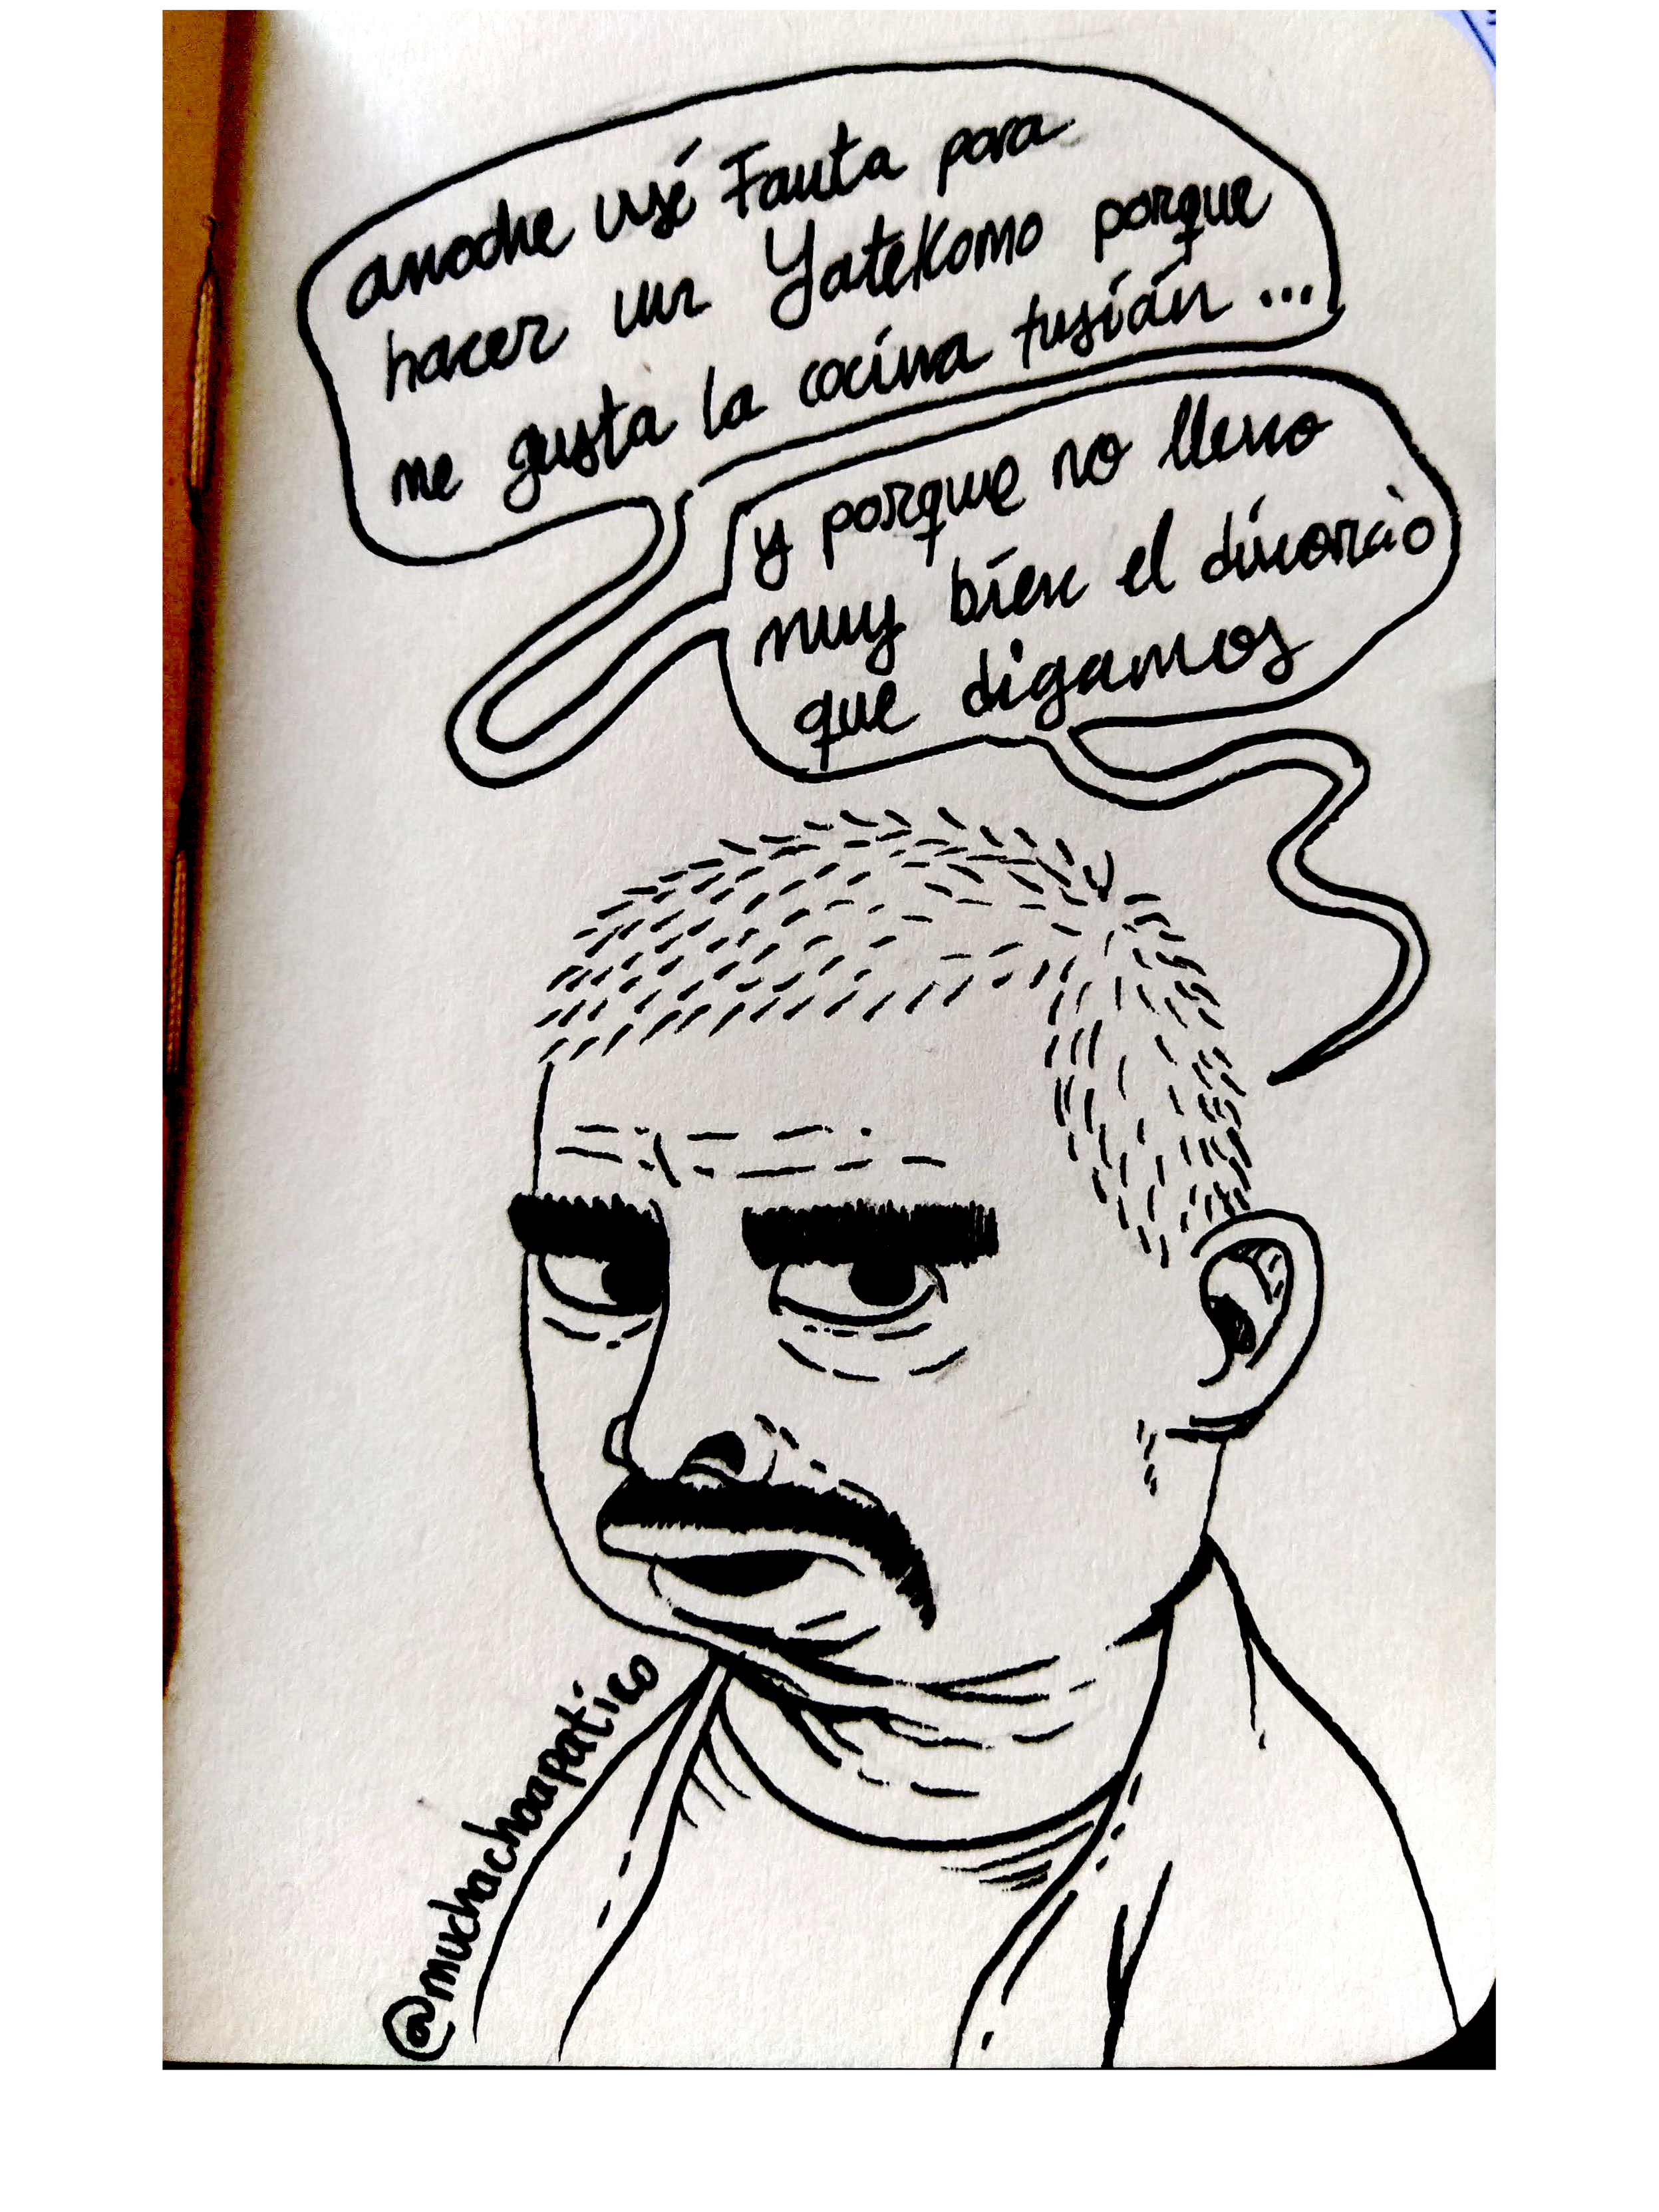 anoche usé Fanta para
hacer un YateKomo porque
me gusta la cocina fusión...
y porque no llevo
muy bien el divorcio
que digamos
@muchachoapatico